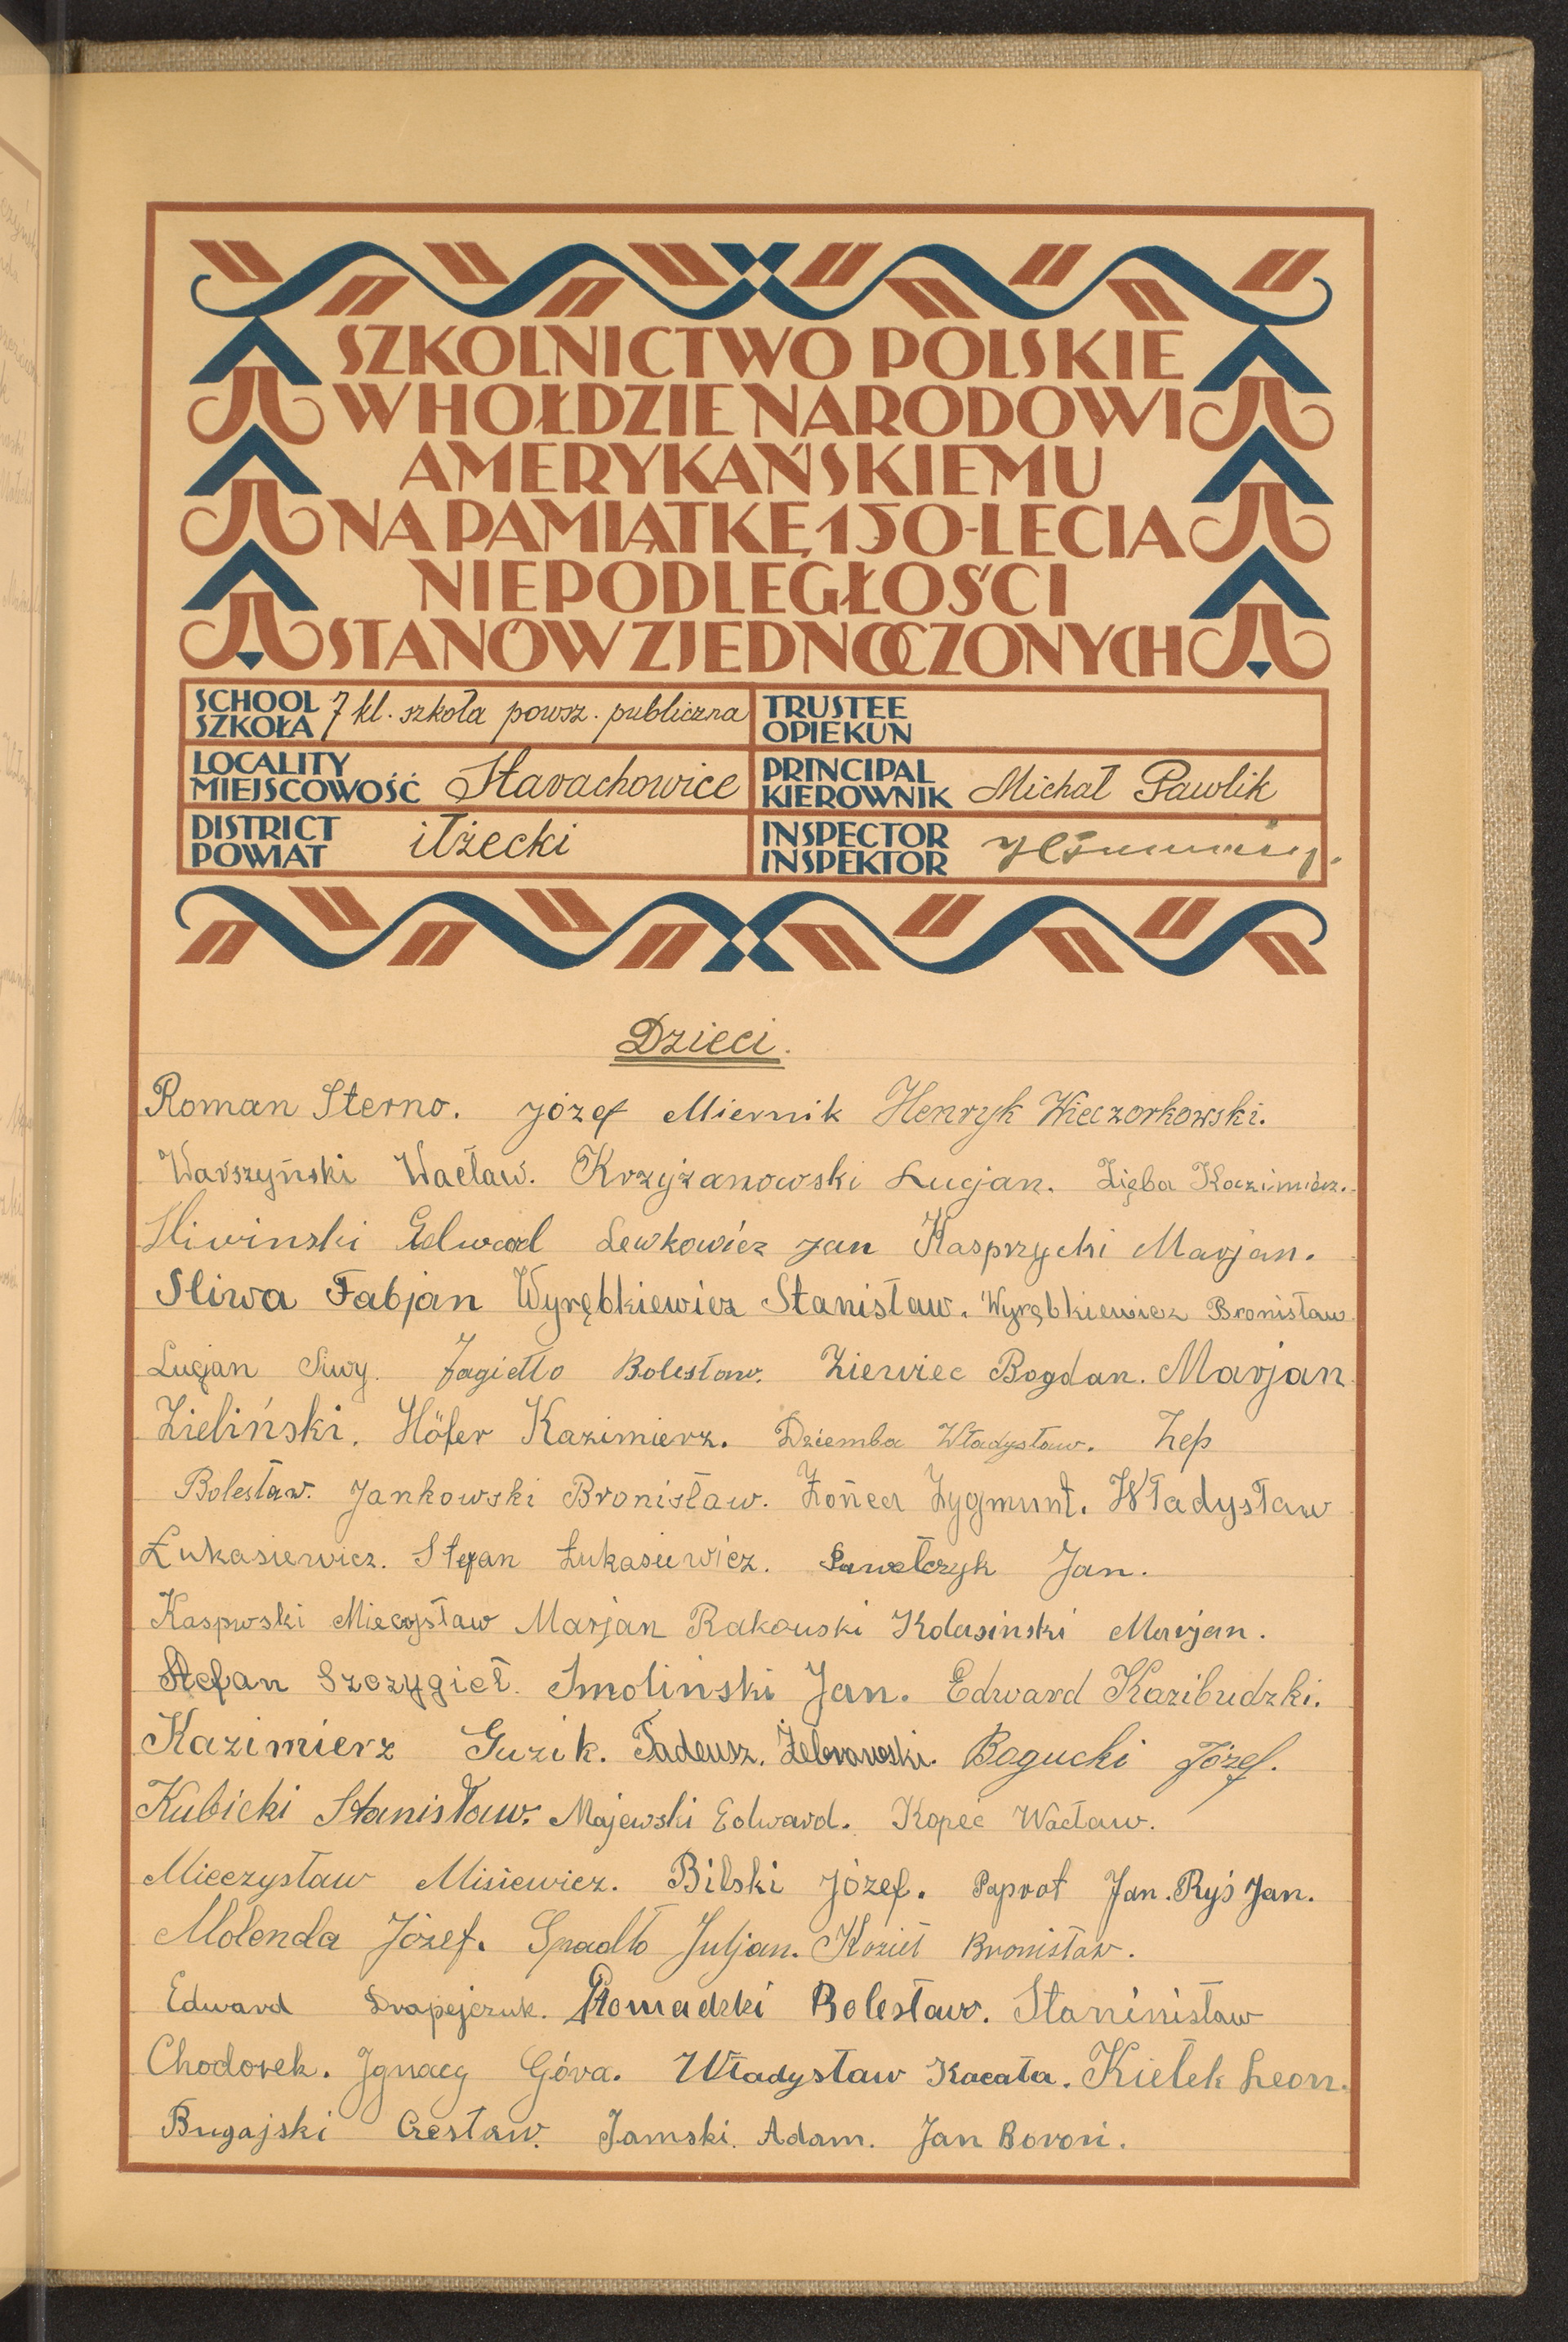 SZKOLNICTWO POLSKIE
W HOŁDZIE NARODOWI
AMERYKAŃSKIEMU
NA PAMIĄTKĘ 150-LECIA
NIEPODLEGŁOŚCI
STANÓW ZJEDNOCZONYCH
SCHOOL
SZKOŁA
7 kl. szkoła powsz. publiczna
TRUSTEE
OPIEKUN
LOCALITY
MIEJSCOWOŚĆ
Starachowice
PRINCIPAL
KIEROWNIK
Michał Pawlik
DISTRICT
POWIAT
iłżecki
INSPECTOR
INSPEKTOR
Dzieci.
Roman Sterno. Józef Miernik Henryk Wieczorkowski.
Warszyński Wacław. Krzyżanowski Lucjan. Zięba Kazimierz.
Sliwinski Edward Lewkowicz Jan Kasprzycki Marjan.
Sliwa Fabjan Wyrębkiewicz Stanisław. Wyrębkiewicz Bronisław
Lucjan Siwy. Jagiełło Bolesław. Ziewiec Bogdan. Marjan
Zieliński. Höfer Kazimierz. Dziemba Władysław. Zep
Bolesław. Jankowski Bronisław. Żońca Zygmunt. Władysław
Łukasiewicz. Stefan Łukasiewicz. Pawelczyk Jan.
Mieczysław Marjan Rakowski Kolasinski Marjan.
Stefan Szczygieł. Smoliński Jan. Edward Kazibudzki.
Kazimierz Guzik. Tadeusz. Żebrowski. Bogucki Józef.
Kubicki Stanisław. Majewski Edward. Kopeć Wacław.
Mieczysław Misiewicz. Bilski Józef. Paprot Jan. Ryś Jan.
Molenda Józef. Spadło Juljan. Kozieł Bronisław.
Edward Drapejczuk. Bolesław. Staninisław
Chodorek. Ignacy Góra. Władysław Kacała. Kiełek Leon.
Bugajski Czesław. Jamski. Adam. Jan Boroń.